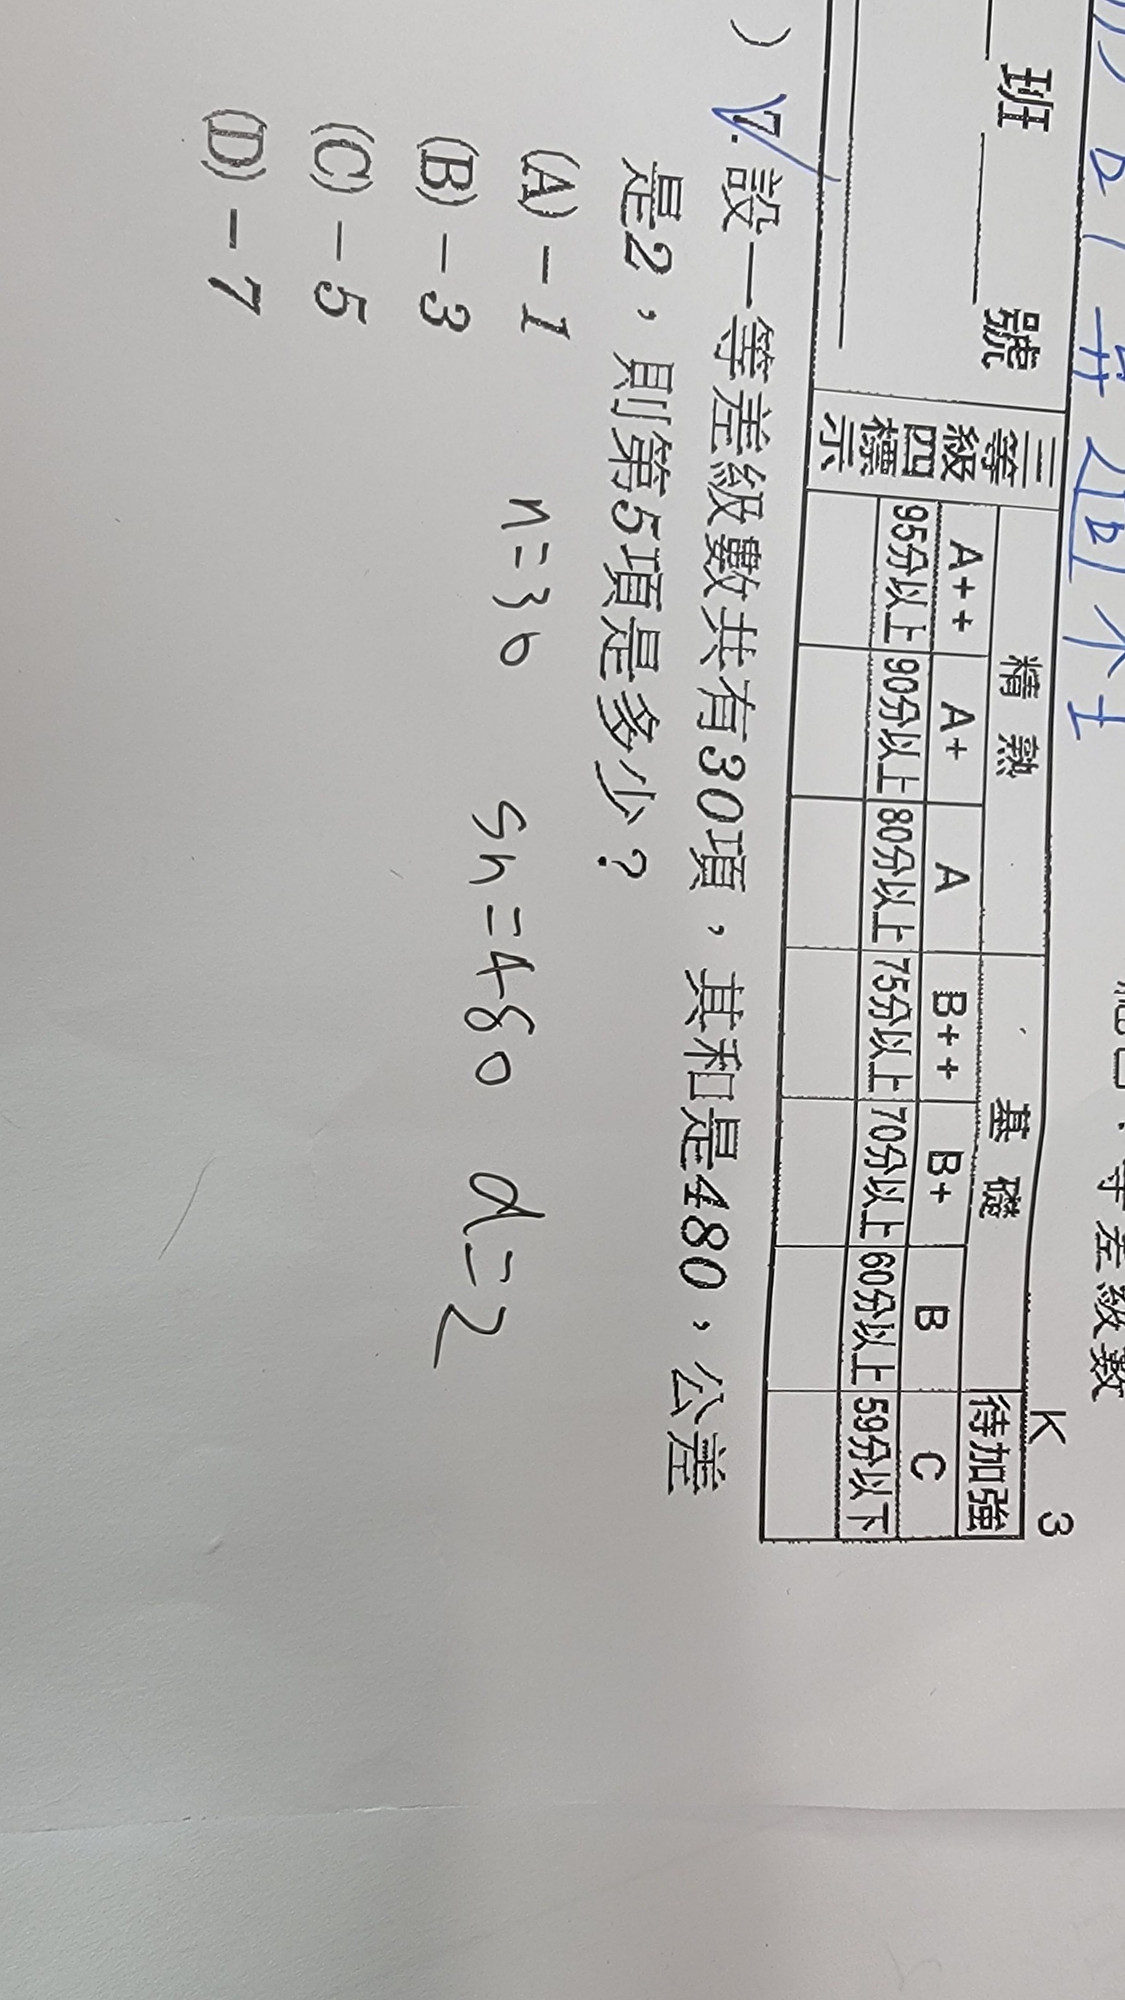 班 號
K 3
三等級四標示
精熟 基礎 待加強
A++ A+ A B++ B+ B C
95分以上 90分以上 80分以上 75分以上 70分以上 60分以上 59分以下
) 7. 設一等差級數共有30項，其和是480，公差
是2，則第5項是多少？
(A)－1
(B)－3
(C)－5
(D)－7
n=30 Sn=480 d=2